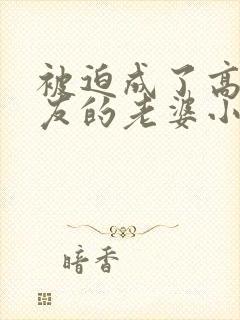 被迫成了高
友的老婆小
暗香